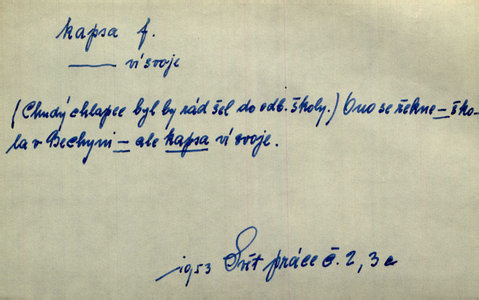 kapsa f.
—— ví svoje
(Chudý chlapec byl by rád šel do odb. školy.) Ono se řekne – ško-
la v Bechyni – ale kapsa ví svoje.
1953 Svět práce č. 2, 3c